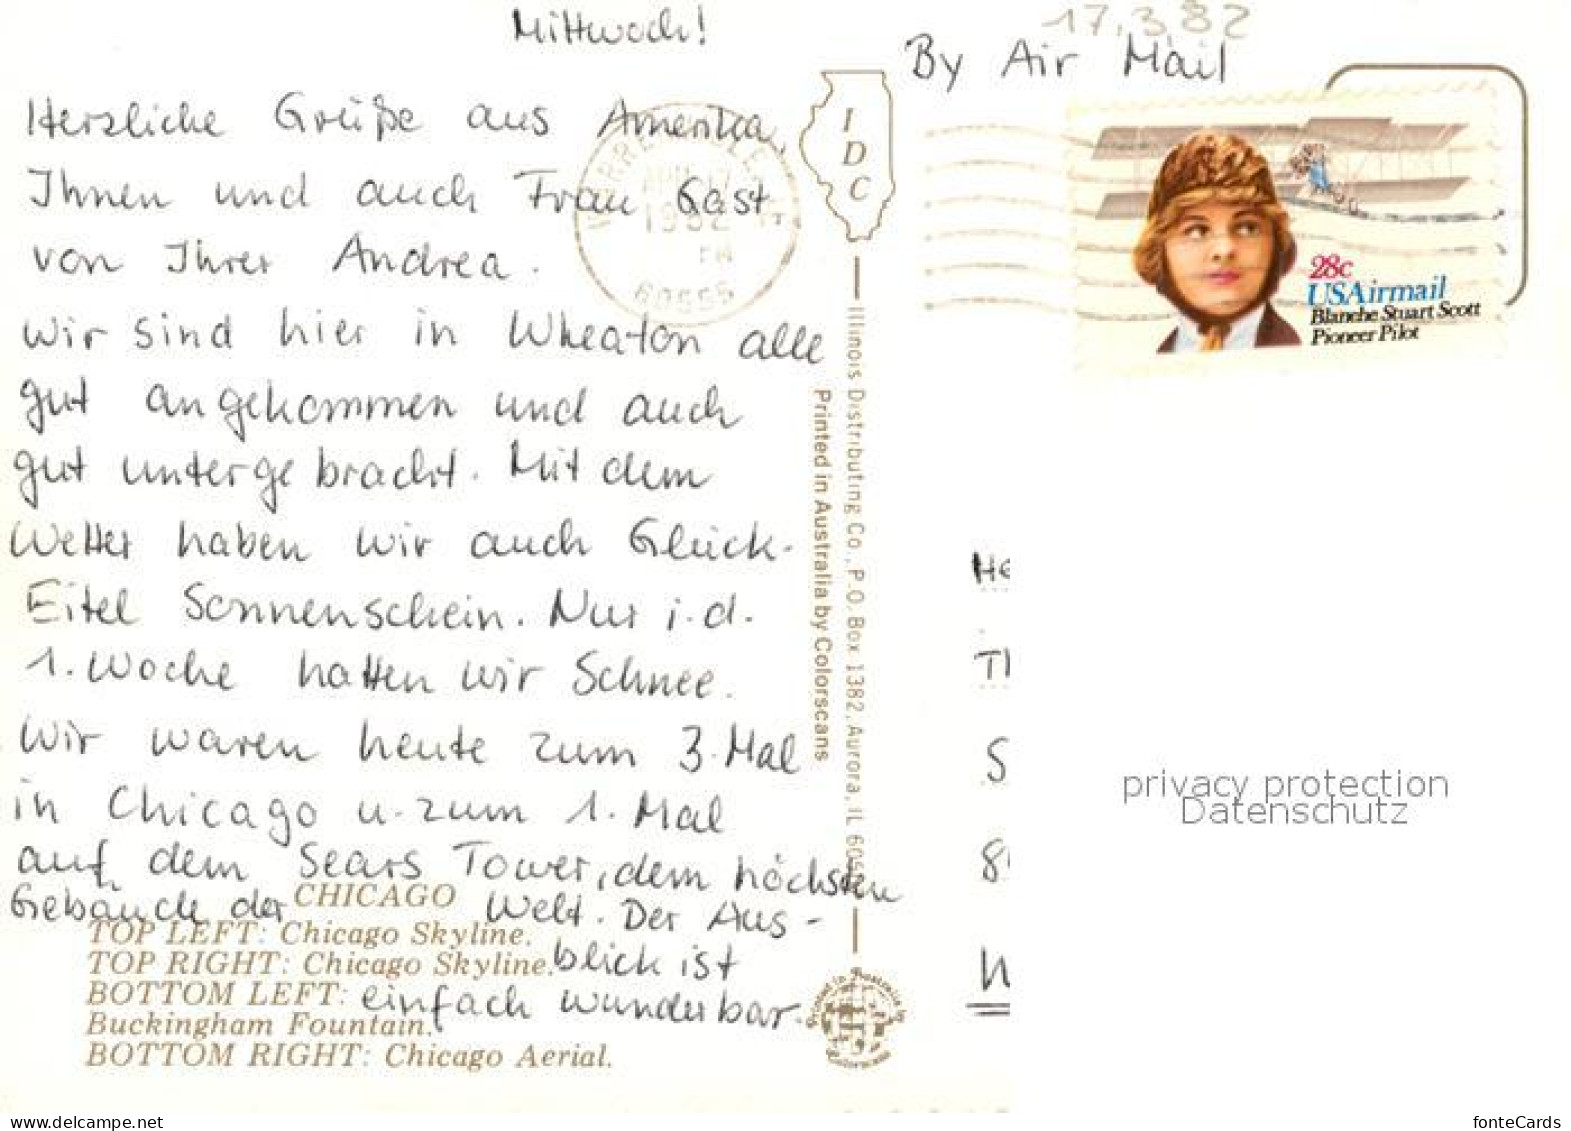 Mittwoch!
17.3.82
By Air Mail
Herzliche Grüße aus Amerika,
Ihnen und auch Frau Gast
von Ihrer Andrea.
Wir sind hier in Wheaton alle
gut angekommen und auch
gut untergebracht. Mit dem
Wetter haben wir auch Glück-
Eitel Sonnenschein. Nur i.d.
1. Woche hatten wir Schnee.
Wir waren heute zum 3. Mal
in Chicago u. zum 1. Mal
auf dem Sears Tower, dem höchsten
Gebäude der Welt. Der Aus-
blick ist
einfach wunderbar.
CHICAGO
TOP LEFT: Chicago Skyline.
TOP RIGHT: Chicago Skyline.
BOTTOM LEFT:
Buckingham Fountain.
BOTTOM RIGHT: Chicago Aerial.
1982
PM
60555
IDC
Illinois Distributing Co., P.O. Box 1382, Aurora, IL
Printed in Australia by Colorscans
28c
USAirmail
Blanche Stuart Scott
Pioneer Pilot
He
Th
S
8
W
privacy protection
Datenschutz
www.delcampe.net
fonteCards